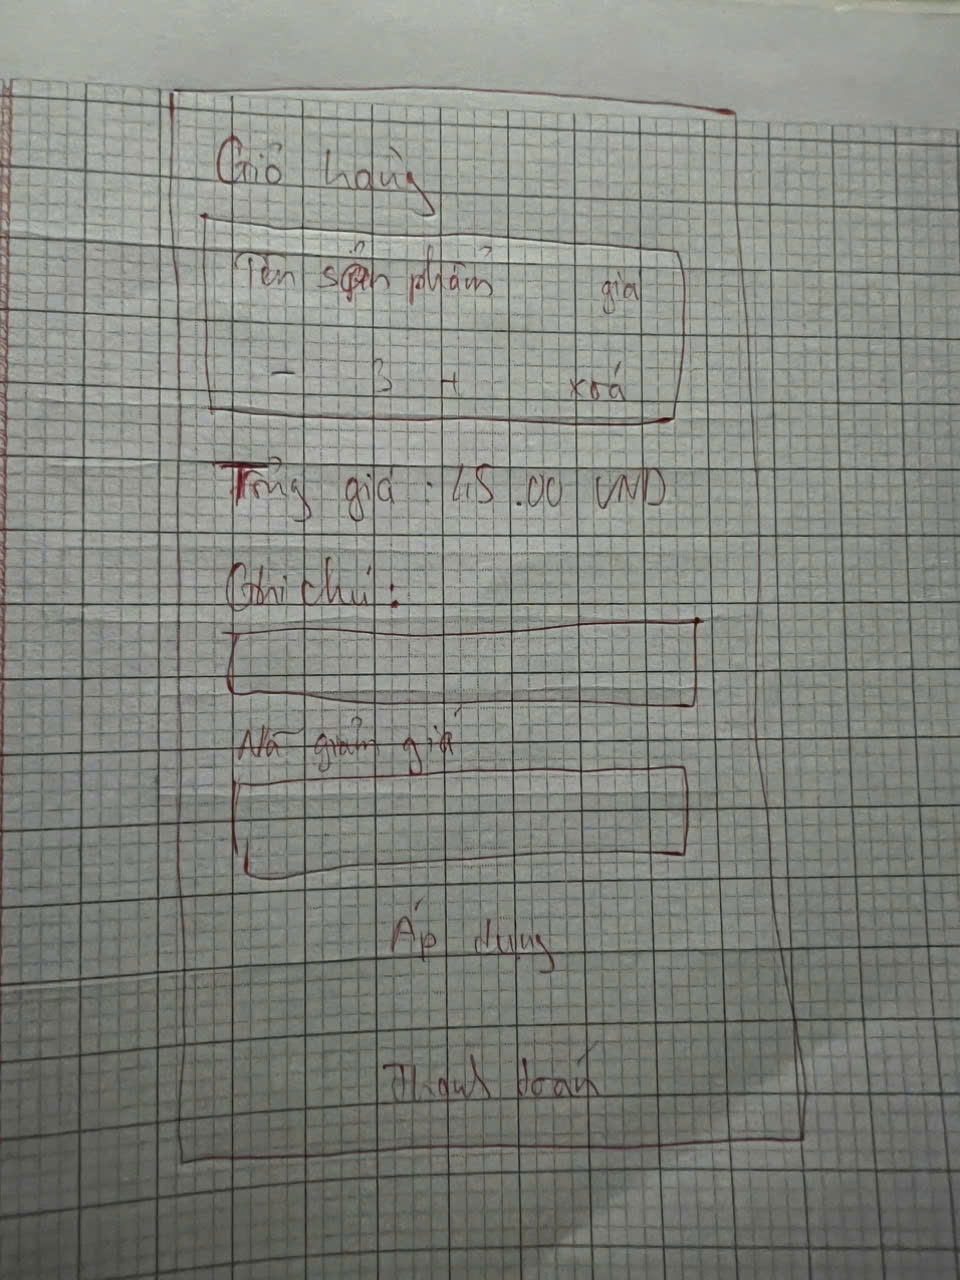 Giỏ hàng
Tên sản phẩm giá
- 3 + xoá
Tổng giá : 45.00 VND
Ghi chú :
Mã giảm giá
Áp dụng
Thanh toán